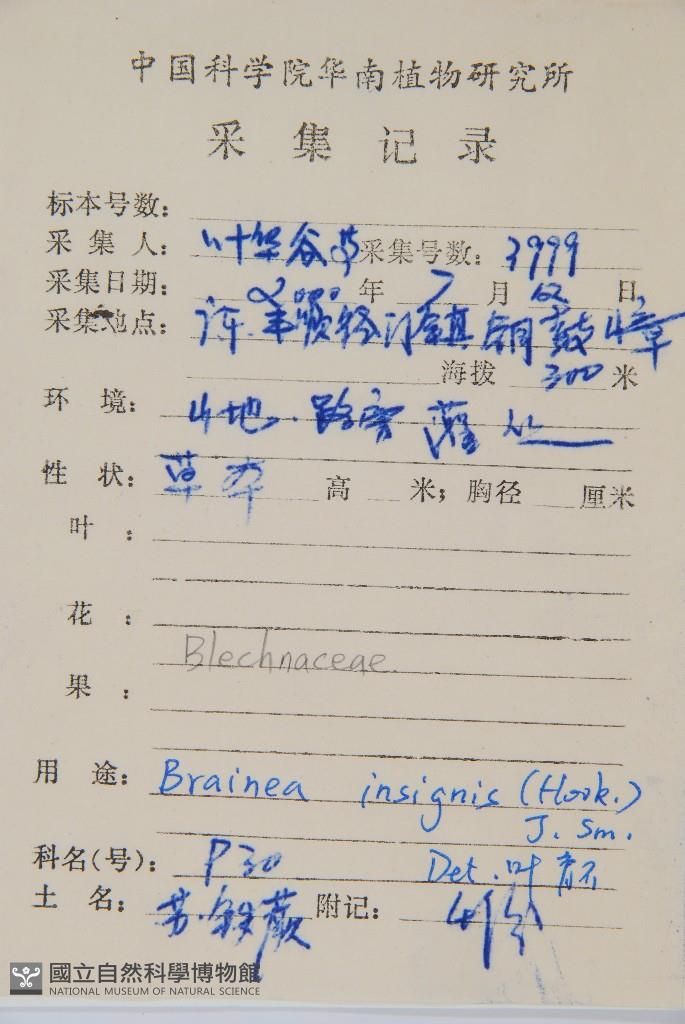 中国科学院华南植物研究所
采集记录
标本号数：
采集人：叶华谷 采集号数：3999
采集日期：2000年7月 日
采集地点：丰顺 镇铜鼓嶂
海拨 300 米
环境：山地．路旁灌丛
性状：草本 高 米；胸径 厘米
叶：
花：
Blechnaceae.
果：
用途：Brainea insignis (Hook.)
J. Sm.
科名(号)：P30 Det. 叶育石
土名：苏铁蕨 附记：4份
國立自然科學博物館
NATIONAL MUSEUM OF NATURAL SCIENCE